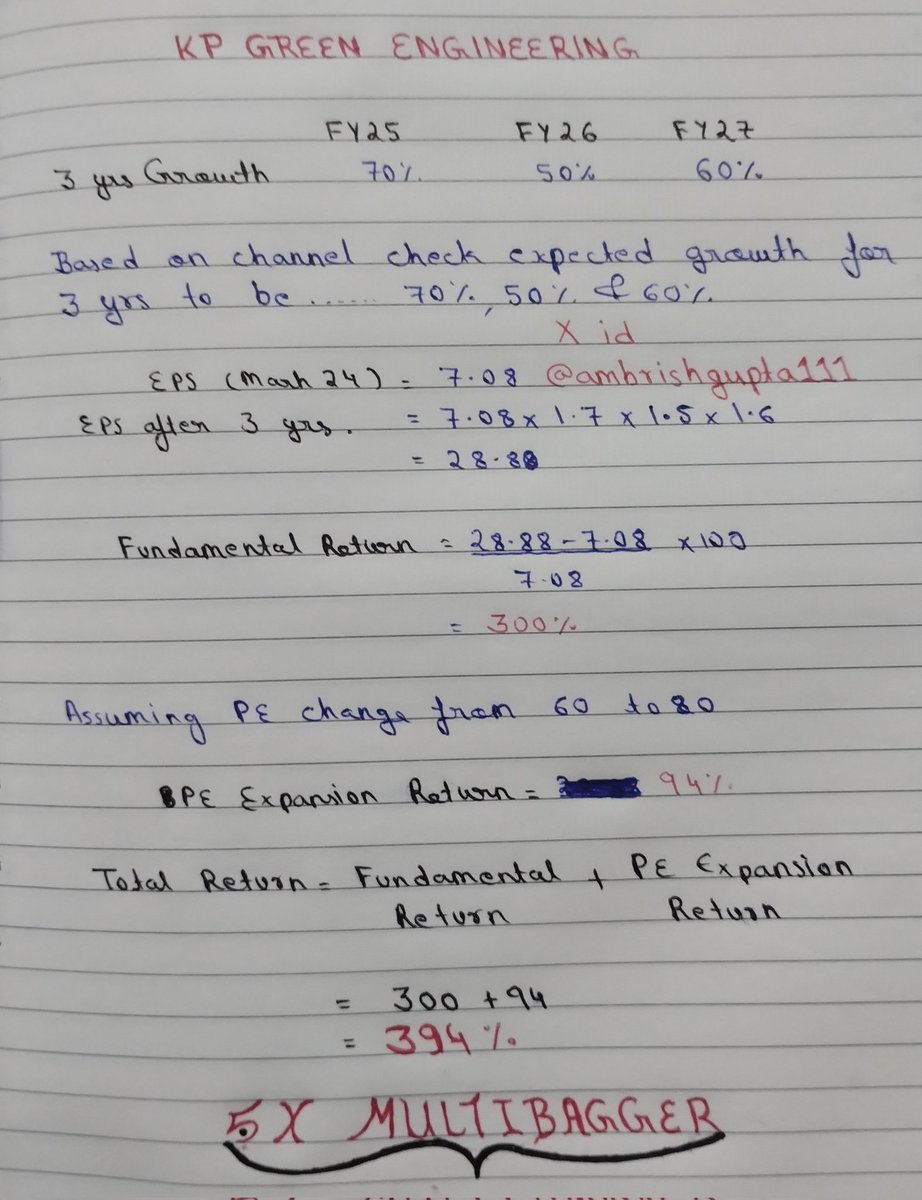 KP GREEN ENGINEERING
FY25 FY26 FY27
3 yrs Growth 70% 50% 60%
Based on channel check expected growth for
3 yrs to be ...... 70%, 50% & 60%
X id
EPS (Marh 24) = 7.08 @ambrishgupta111
EPS after 3 yrs. = 7.08 x 1.7 x 1.5 x 1.6
= 28.88
Fundamental Return = 28.88 - 7.08 x 100
7.08
= 300%
Assuming PE change from 60 to 80
PE Expansion Return = 94%
Total Return = Fundamental + PE Expansion
Return Return
= 300 + 94
= 394%
5X MULTIBAGGER